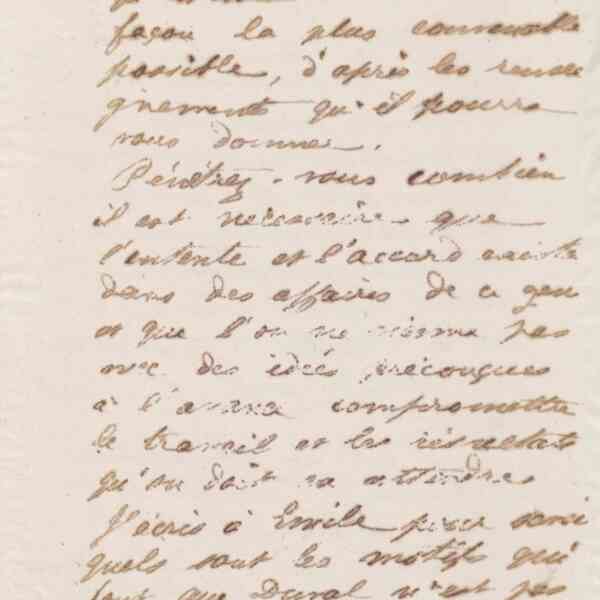 façon la plus convenable
possible, d'après les rensei
gnements qu'il pourra
vous donner.
Pénétrez-vous combien
il est nécessaire que
l'entente et l'accord existe
dans des affaires de ce genre
et que l'on ne vienne pas
avec des idées préconçues
à l'avance compromettre
le travail et les résultats
qu'on doit en attendre
J'écris à Emile pour savoir
quels sont les motifs qui
font que Duval n'est pas